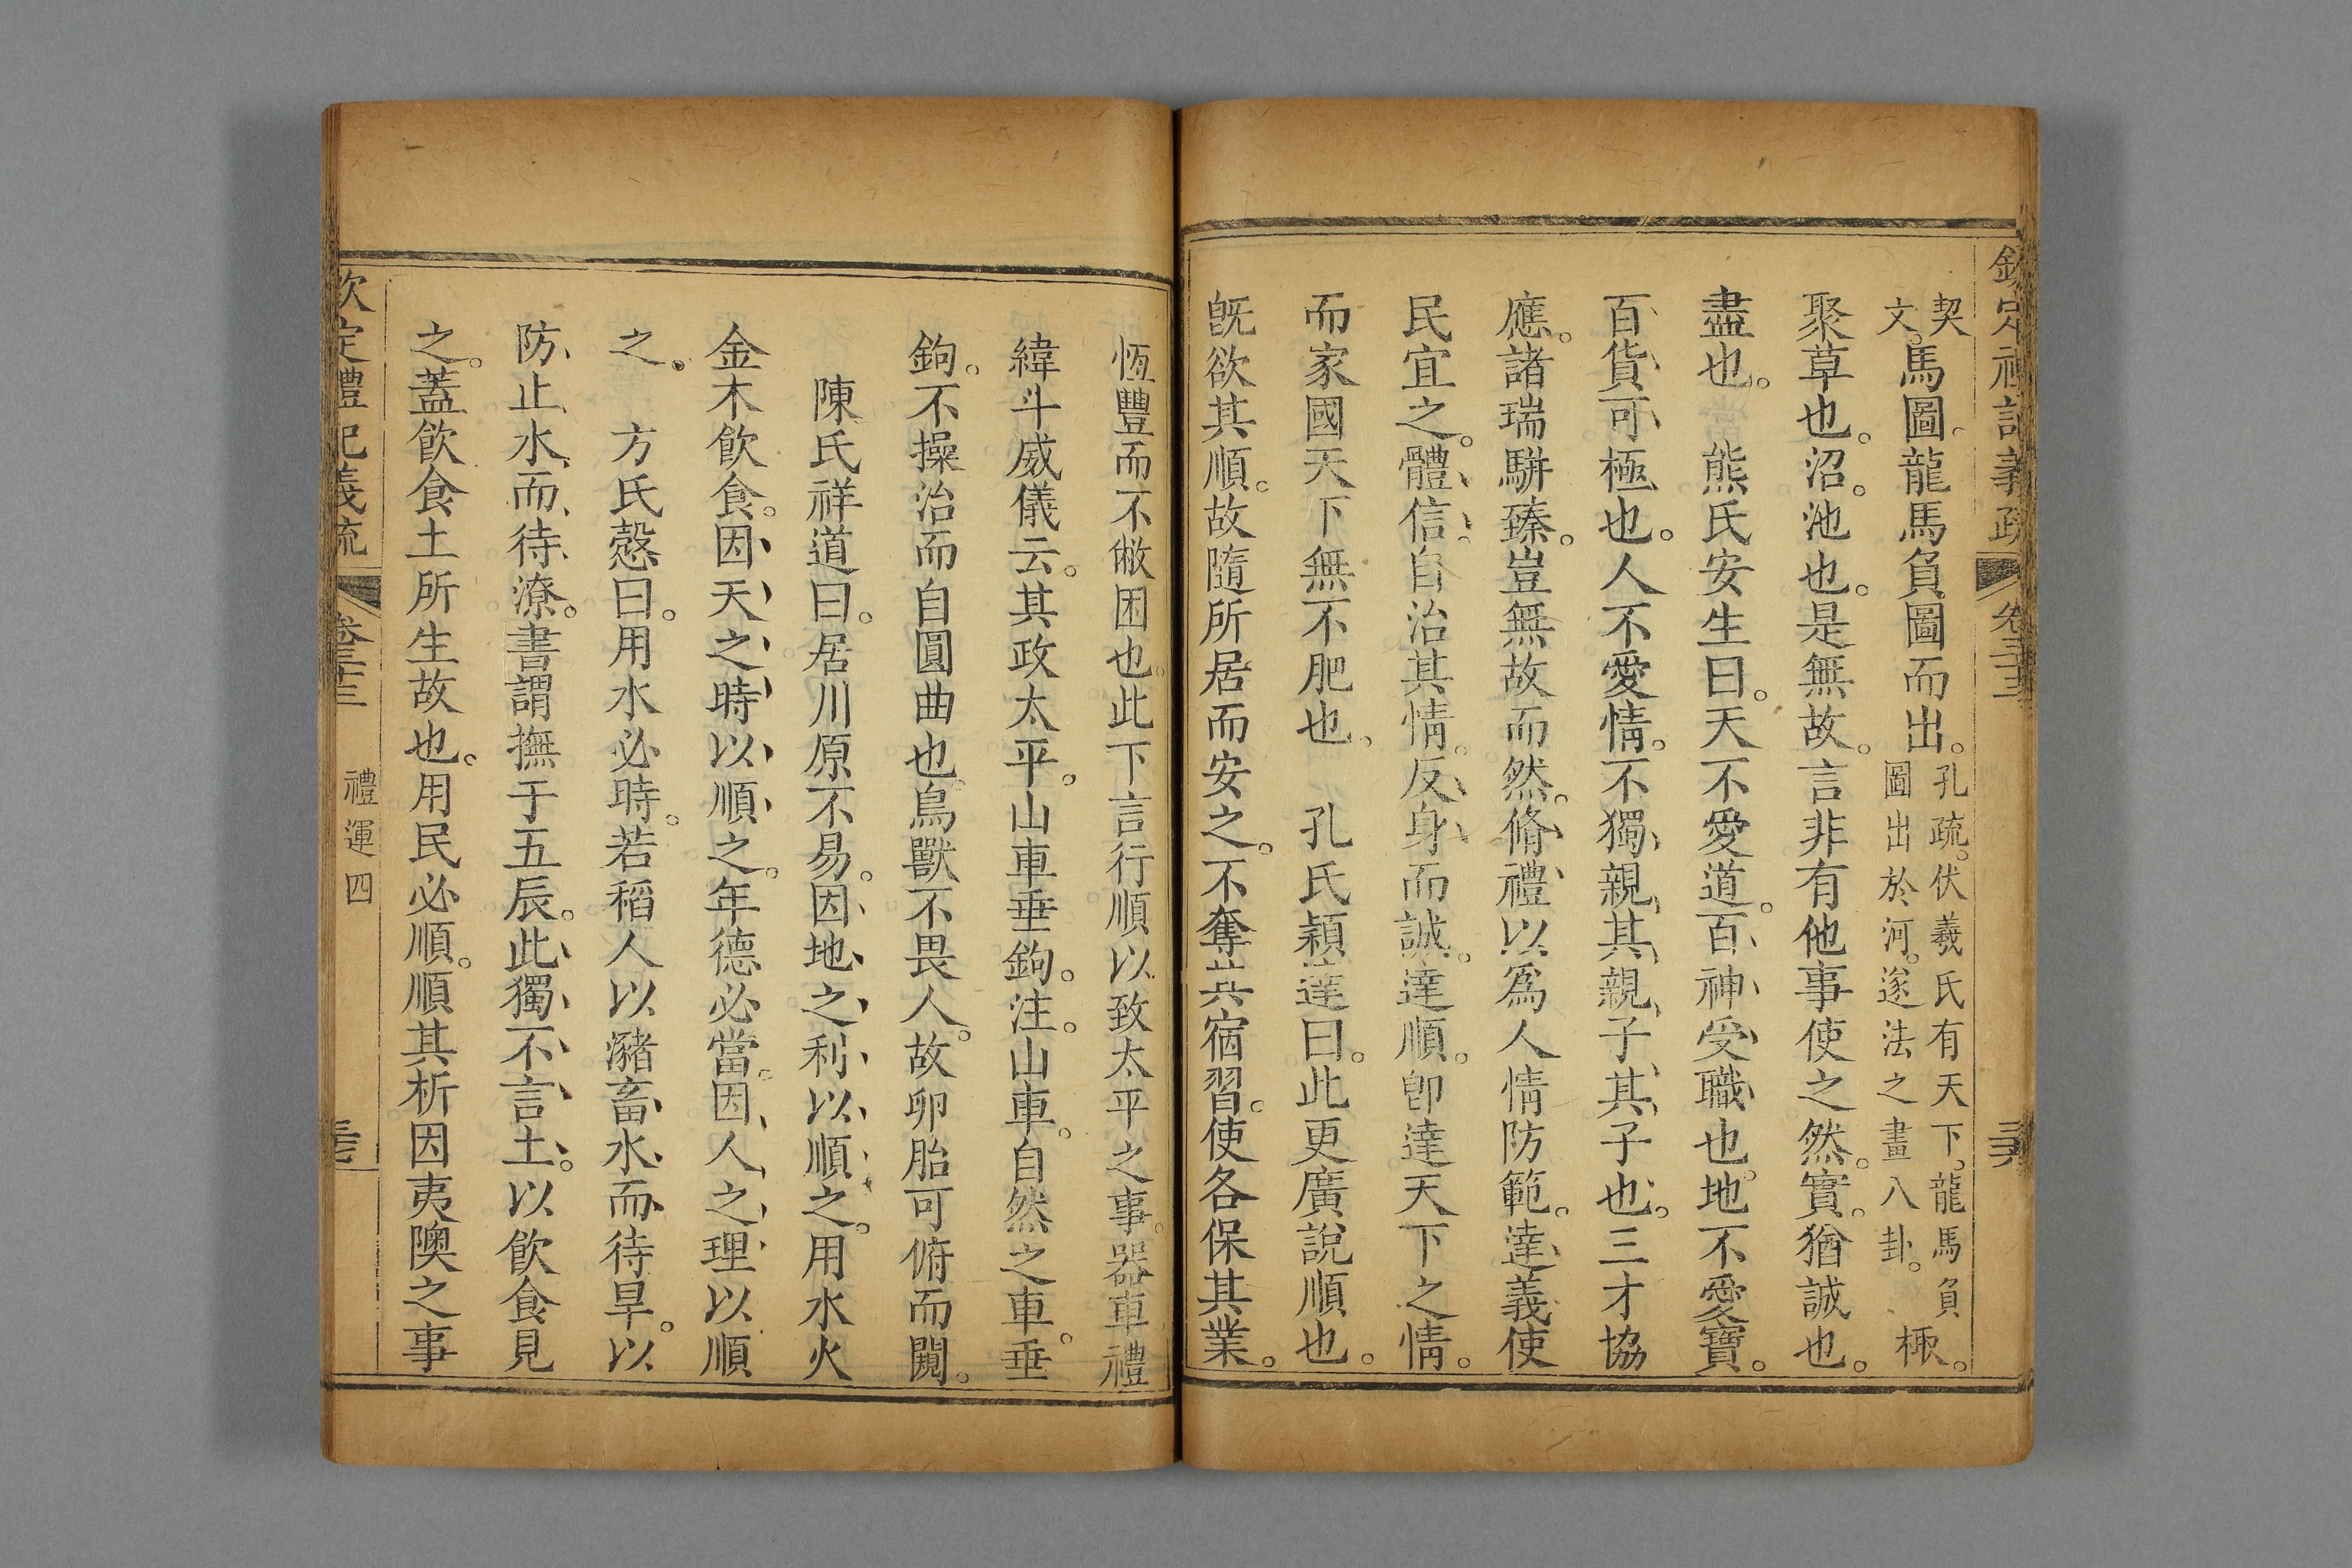 欽定禮記義疏 卷三十三
契文。馬圖。龍馬負圖而出。孔疏。伏羲氏有天下。龍馬負圖出於河。遂法之畫八卦。棷。
聚草也。沼。池也。是無故。言非有他事使之然。實。猶誠也。
盡也。 熊氏安生曰。天不愛道。百神受職也。地不愛寶。
百貨可極也。人不愛情。不獨親其親子其子也。三才協
應。諸瑞駢臻。豈無故而然。脩禮以爲人情防範。達義使
民宜之。體信自治其情。反身而誠。達順。卽達天下之情。
而家國天下無不肥也。 孔氏穎達曰。此更廣說順也。
旣欲其順。故隨所居而安之。不奪其宿習。使各保其業。
恆豐而不敝困也。此下言行順以致太平之事。器車禮
緯斗威儀云。其政太平。山車垂鉤。注。山車。自然之車。垂
鉤。不操治而自圓曲也。鳥獸不畏人。故卵胎可俯而闚。
陳氏祥道曰。居川原不易。因地之利以順之。用水火
金木飲食。因天之時以順之。年德必當。因人之理以順
之。 方氏慤曰。用水必時。若稻人以瀦畜水而待旱。以
防止水而待潦。書謂撫于五辰。此獨不言土。以飲食見
之。蓋飲食土所生故也。用民必順。順其析因夷隩之事
欽定禮記義疏 卷三十三 禮運四